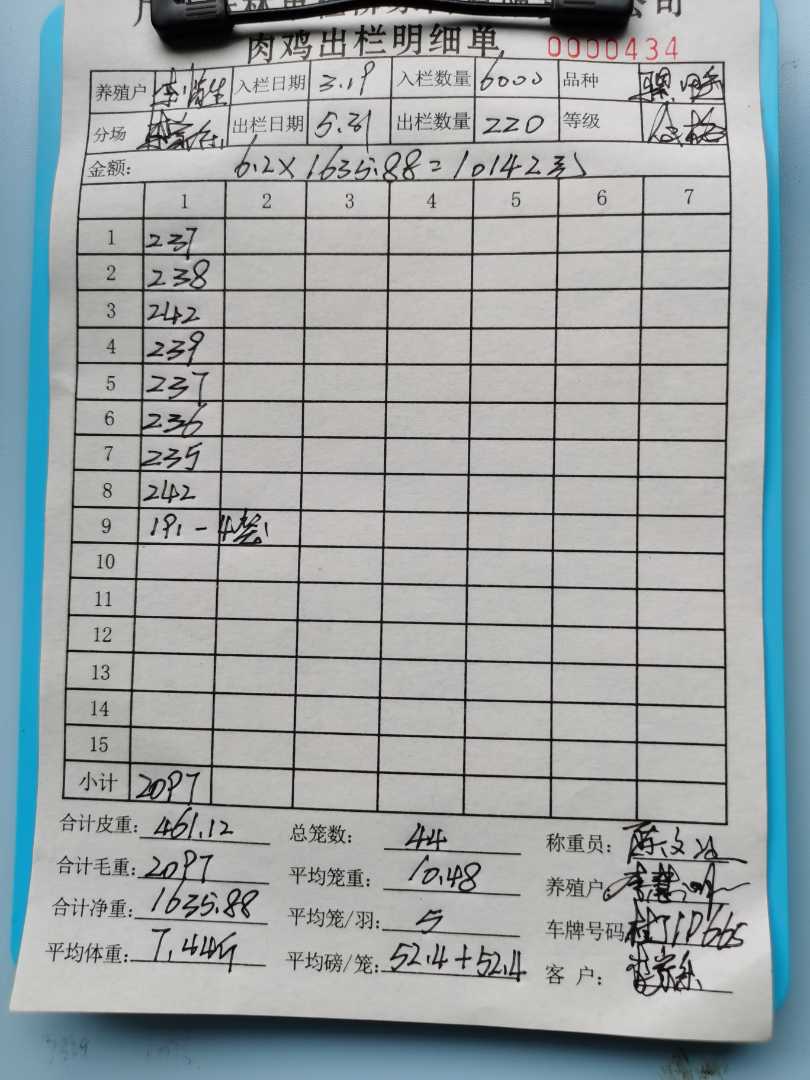 公司
肉鸡出栏明细单 0000434
养殖户 入栏日期 3.19 入栏数量 6000 品种
分场 出栏日期 5.31 出栏数量 220 等级
金额: 6.2×1635.88=10142元
1 2 3 4 5 6 7
1 237
2 238
3 242
4 239
5 237
6 236
7 235
8 242
9 191-4笼
10
11
12
13
14
15
小计 2097
合计皮重: 461.12 总笼数: 44 称重员:
合计毛重: 2097 平均笼重: 10.48 养殖户:
合计净重: 1635.88 平均笼/羽: 5 车牌号码
平均体重: 7.44斤 平均磅/笼: 52.4+52.4 客户: